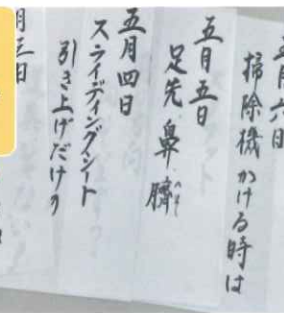 五月六日
掃除機かける時は
五月五日
足先鼻臍
へそ
五月四日
スライディングシート
引き上げだけの
月三日